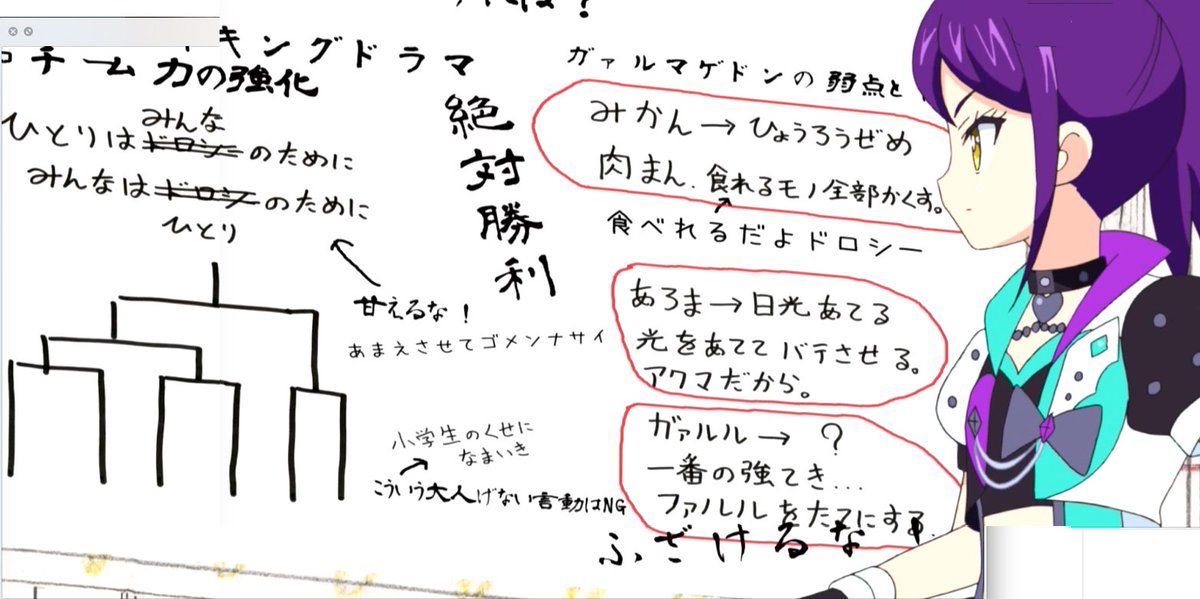 れは？
キングドラマ
チーム力の強化
ひとりは
みんな
ドロシーのために
みんなはドロシーのために
ひとり
甘えるな！
あまえさせてゴメンナサイ
小学生のくせに
なまいき
こういう大人げない言動はNG
絶対勝利
ガァルマゲドンの弱点と
みかん→ひょうろうぜめ
肉まん、食れるモノ全部かくす。
食べれるだよドロシー
あろま→日光あてる
光をあててバテさせる。
アクマだから。
ガァルル→？
一番の強てき…
ファルルをたてにする
ふざけるな